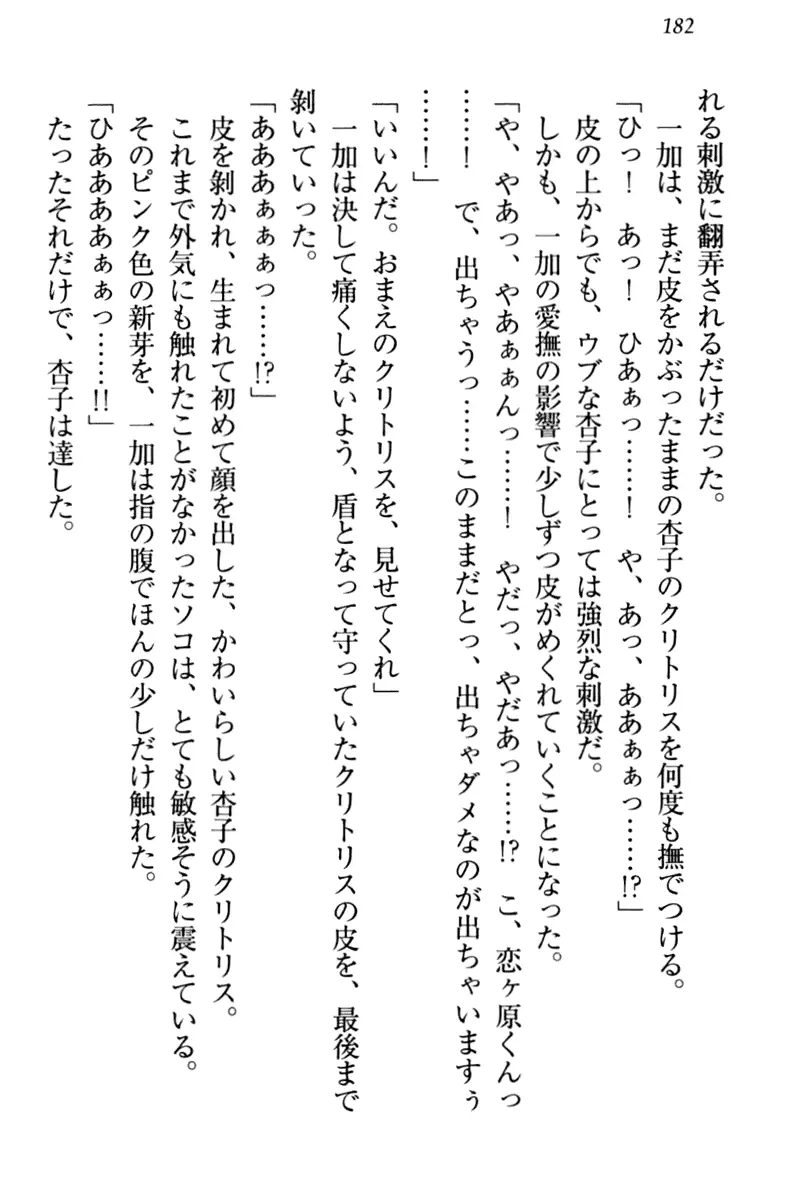 182
れる刺激に翻弄されるだけだった。
一加は、まだ皮をかぶったままの杏子のクリトリスを何度も撫でつける。
「ひっ！　あっ！　ひあぁっ……！　や、あっ、ああぁぁっ……!?」
皮の上からでも、ウブな杏子にとっては強烈な刺激だ。
しかも、一加の愛撫の影響で少しずつ皮がめくれていくことになった。
「や、やあっ、やあぁぁんっ……！　やだっ、やだあっ……!?　こ、恋ヶ原くんっ
……！　で、出ちゃうっ……このままだとっ、出ちゃダメなのが出ちゃいますぅ
……！」
「いいんだ。おまえのクリトリスを、見せてくれ」
一加は決して痛くしないよう、盾となって守っていたクリトリスの皮を、最後まで
剝いていった。
「あああぁぁぁっ……!?」
皮を剝かれ、生まれて初めて顔を出した、かわいらしい杏子のクリトリス。
これまで外気にも触れたことがなかったソコは、とても敏感そうに震えている。
そのピンク色の新芽を、一加は指の腹でほんの少しだけ触れた。
「ひああああぁぁっ……!!」
たったそれだけで、杏子は達した。